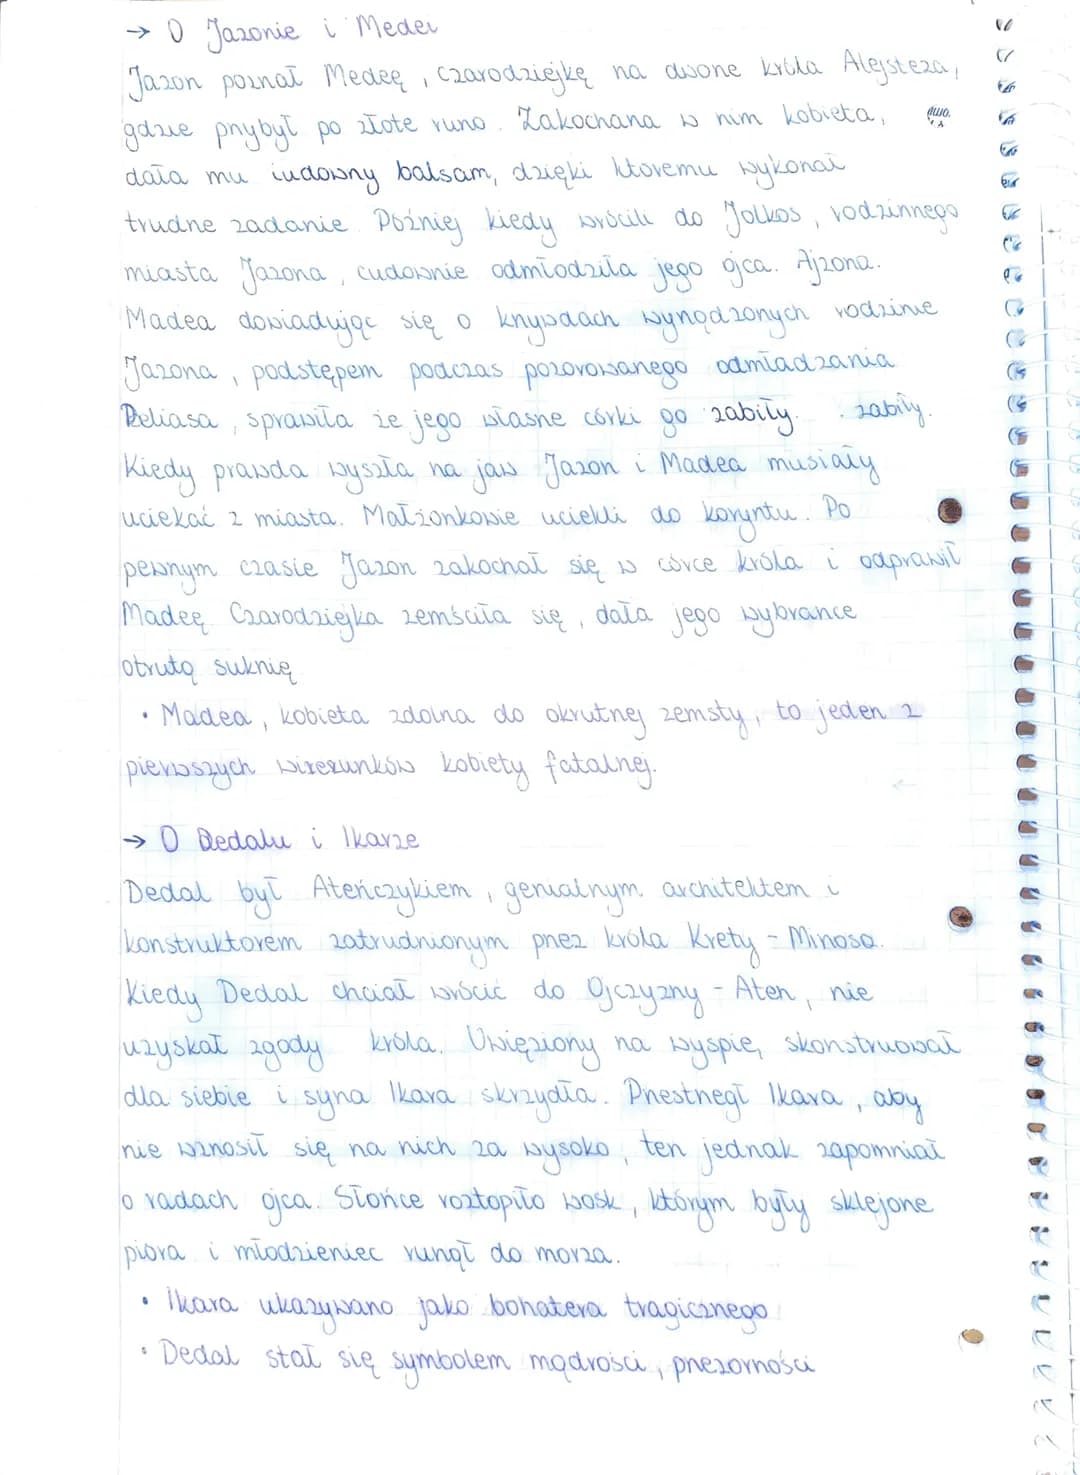 → O Jazonie i Medei
Jazon poznał Medeę, czarodziejkę na dworze króla Alejsteza,
gdzie przybył po złote runo. Zakochana w nim kobieta,
dała mu cudowny balsam, dzięki któremu wykonał
trudne zadanie. Później kiedy wrócili do Jolkos, rodzinnego
miasta Jazona, cudownie odmłodziła jego ojca. Ajzona.
Madea dowiadując się o krzywdach wyrządzonych rodzinie
Jazona, podstępem podczas pozorowanego odmładzania
Peliasa, sprawiła że jego własne córki go zabiły. zabiły.
Kiedy prawda wyszła na jaw Jazon i Madea musiały
uciekać z miasta. Małżonkowie uciekli do koryntu. Po
pewnym czasie Jazon zakochał się w córce króla i odprawił
Madeę. Czarodziejka zemściła się, dała jego wybrance
otrutą suknię
• Madea, kobieta zdolna do okrutnej zemsty, to jeden z
pierwszych wizerunków kobiety fatalnej.
→ O Dedalu i Ikarze
Dedal był Ateńczykiem, genialnym architektem i
konstruktorem zatrudnionym przez króla Krety - Minosa.
Kiedy Dedal chciał wrócić do Ojczyzny - Aten, nie
uzyskał zgody króla. Uwięziony na wyspie, skonstruował
dla siebie i syna Ikara skrzydła. Przestrzegł Ikara, aby
nie wznosił się na nich za wysoko, ten jednak zapomniał
o radach ojca. Słońce roztopiło wosk, którym były sklejone
pióra i młodzieniec runął do morza.
• Ikara ukazywano jako bohatera tragicznego
• Dedal stał się symbolem mądrości, przezorności